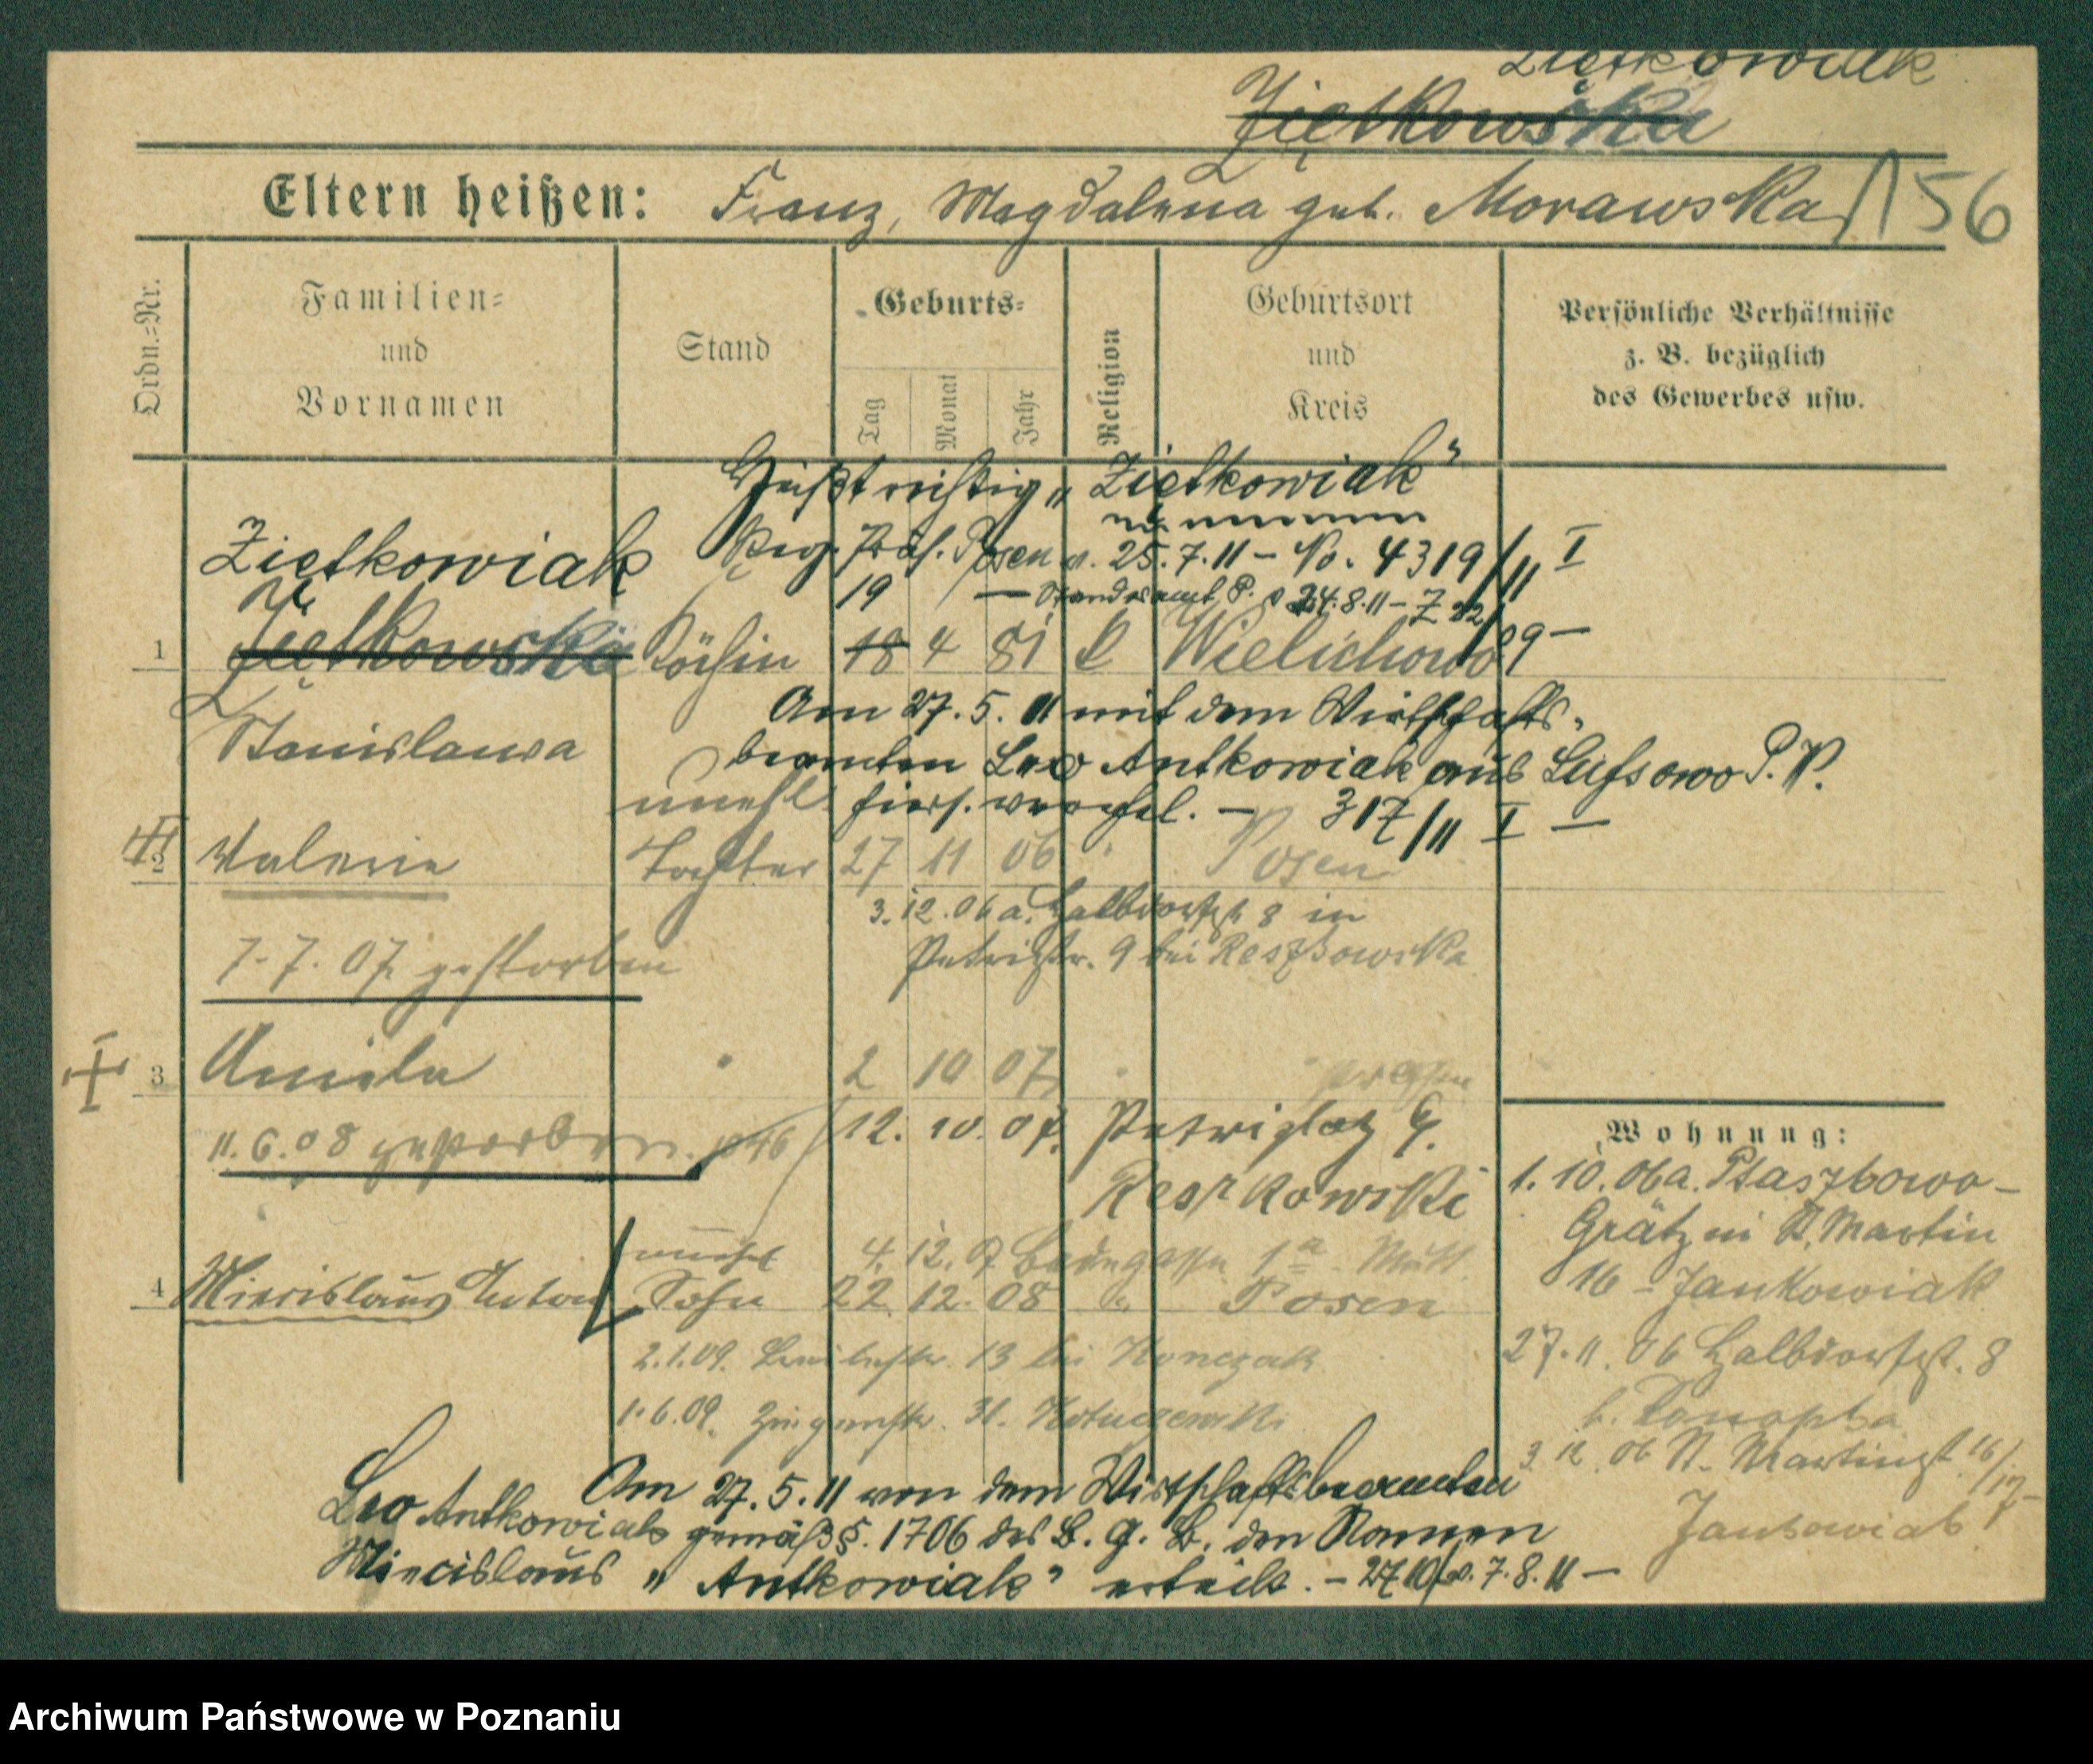 Ziętkowiak
Ziętkowska
Eltern heißen: Franz, Magdalena geb. Morawska 156
Ordn.=Nr.
Familien=
und
Vornamen
Stand
Geburts=
Tag
Monat
Jahr
Religion
Geburtsort
und
Kreis
Persönliche Verhältnisse
z. B. bezüglich
des Gewerbes usw.
Heißt richtig „Ziętkowiak"
Ziętkowiak
Reg. Präs. Posen v. 25.7.11 – No. 4319/11 I
19 — Standesamt P. v 24.8.11 –
1 Ziętkowska Köchin 18 4 81 k Wielichowo
Stanislawa
Am 27.5.11 mit dem Wirtschafts-
beamten Leo Antkowiak aus Lussowo P. W.
hiers. verehel. — 317/11 I —
unehl.
2 Valerie Tochter 27 11 06 " Posen
3.12.06 a. Halbdorfstr 8 in
Petristr. 9 bei Reszkowska
7.7.07 gestorben
3 Aniela " 2 10 07 "
11.6.08 gestorben.
12. 10. 07. Petriplatz 9.
Reszkowski
Wohnung:
1. 10. 06 a. Ptaszkowo –
Grätz in St. Martin
16 – Jankowiak
27.11.06 Halbdorfst. 8
b. Konopka
3 12 06 St. Martinst. 16/17
Jankowiak
unehel 4. 12. 07 Badegasse 1a
4 Miecislaus Anton Sohn 22. 12. 08 " Posen
2.1.09. 13 bei Konczak
1.6.09. 31.
Am 27.5.11 von dem Wirtschaftsbeamten
Leo Antkowiak gemäß §. 1706 des B. G. B. den Namen
Miecislaus „Antkowiak" erteilt. – v. 7.8.11 —
Archiwum Państwowe w Poznaniu